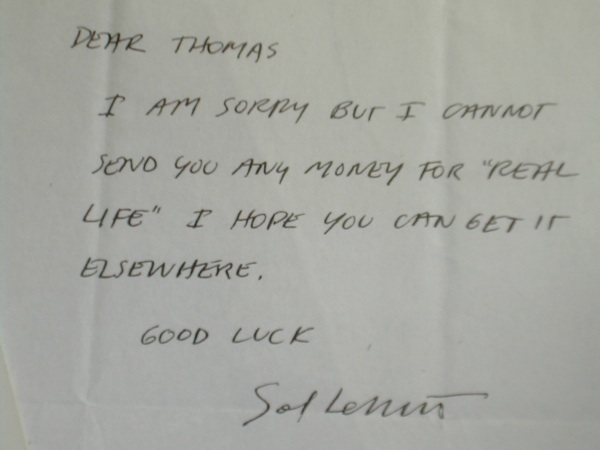 DEAR THOMAS
I AM SORRY BUT I CANNOT
SEND YOU ANY MONEY FOR "REAL
LIFE" I HOPE YOU CAN GET IT
ELSEWHERE.
GOOD LUCK
Sol LeWitt